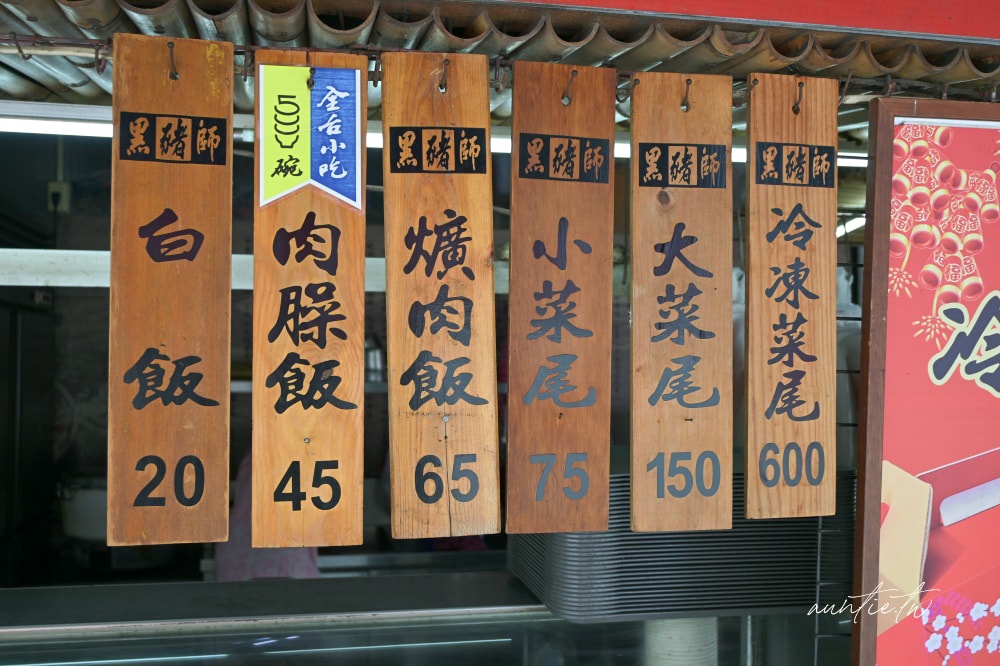 黑豬師
白飯
20
500碗
全台小吃
肉臊飯
45
黑豬師
爌肉飯
65
黑豬師
小菜尾
75
黑豬師
大菜尾
150
黑豬師
冷凍菜尾
600
冷
auntie.tw